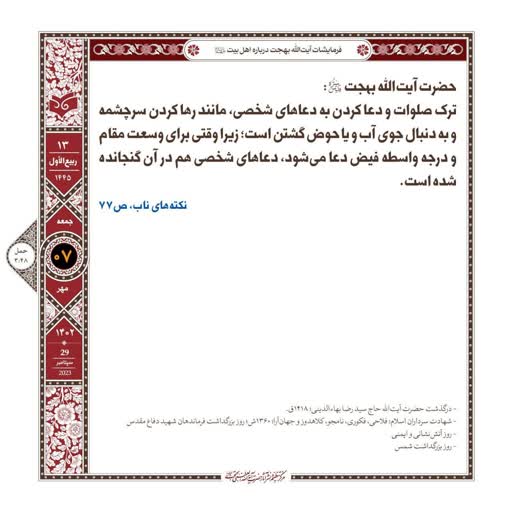 فرمایشات آیت‌الله بهجت درباره اهل بیت
حضرت آیت‌الله بهجت :
ترک صلوات و دعا کردن به دعاهای شخصی، مانند رها کردن سرچشمه
و به دنبال جوی آب و یا حوض گشتن است؛ زیرا وقتی برای وسعت مقام
و درجه واسطه فیض دعا می‌شود، دعاهای شخصی هم در آن گنجانده
شده است.
نکته‌های ناب، ص۷۷
۱۳
ربیع‌الأول
۱۴۴۵
جمعه
۰۷
مهر
۱۴۰۲
29
سپتامبر
2023
حمل
۳:۴۸
- درگذشت حضرت آیت‌الله حاج سید رضا بهاءالدینی؛ ۱۴۱۸ق.
- شهادت سرداران اسلام: فلاحی، فکوری، نامجو، کلاهدوز و جهان‌آرا؛ ۱۳۶۰ش؛ روز بزرگداشت فرماندهان شهید دفاع مقدس
- روز آتش‌نشانی و ایمنی
- روز بزرگداشت شمس